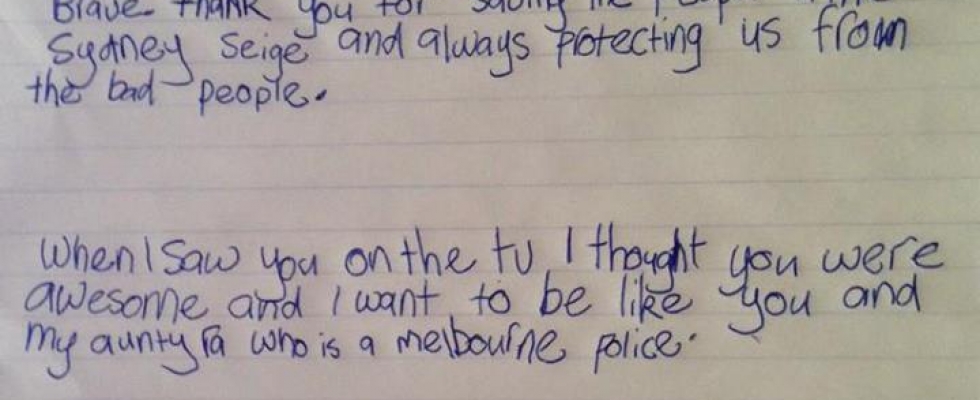 Brave thank you for saving the people in the
Sydney seige and always protecting us from
the bad people.
When I saw you on the tv I thought you were
awesome and I want to be like you and
my aunty Ra who is a melbourne police.